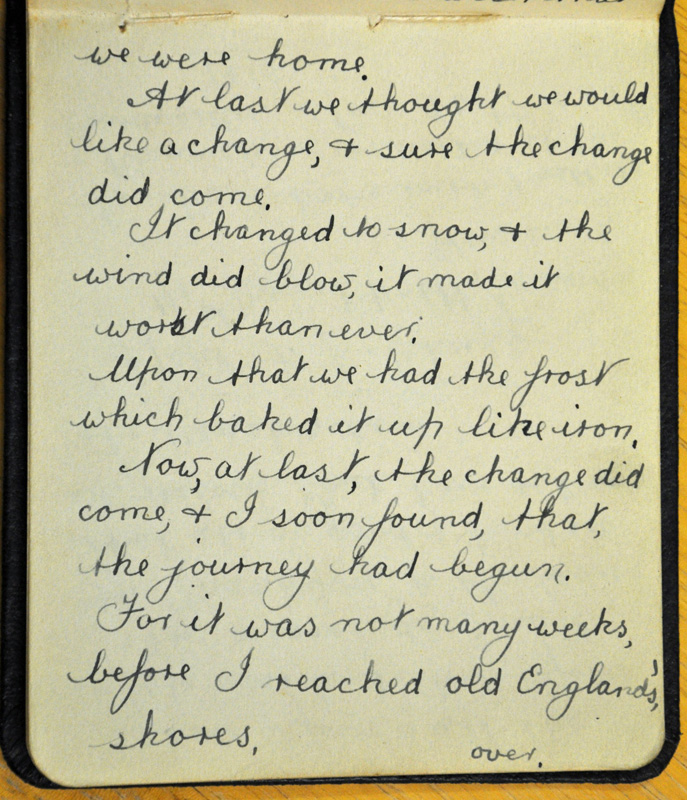 we were home.
At last we thought we would
like a change, & sure the change
did come.
It changed to snow, & the
wind did blow, it made it
worst than ever.
Upon that we had the frost
which baked it up like iron.
Now, at last, the change did
come, & I soon found, that,
the journey had begun.
For it was not many weeks,
before I reached old England's,
shores.
over.